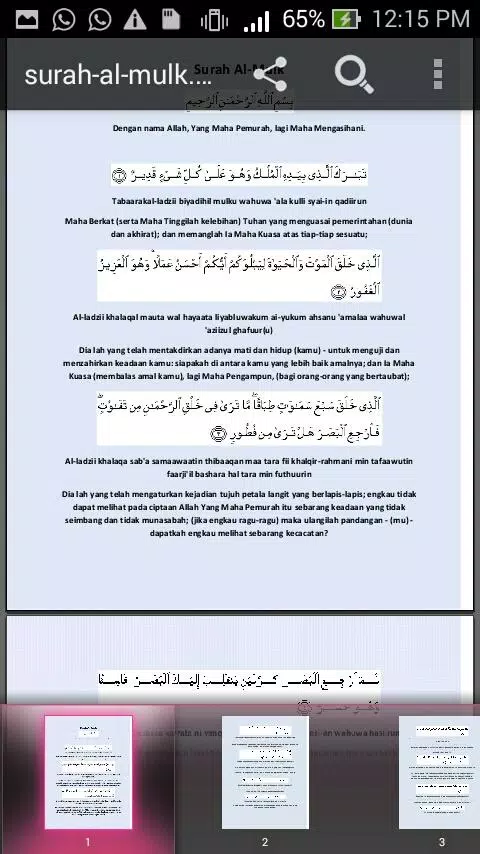 65% 12:15 PM
surah-al-mulk....
Surah Al-Mulk
بِسْمِ اللَّهِ الرَّحْمَٰنِ الرَّحِيمِ
Dengan nama Allah, Yang Maha Pemurah, lagi Maha Mengasihani.
تَبَٰرَكَ الَّذِى بِيَدِهِ الْمُلْكُ وَهُوَ عَلَىٰ كُلِّ شَىْءٍ قَدِيرٌ ﴿١﴾
Tabaarakal-ladzii biyadihil mulku wahuwa 'ala kulli syai-in qadiirun
Maha Berkat (serta Maha Tinggilah kelebihan) Tuhan yang menguasai pemerintahan (dunia
dan akhirat); dan memanglah Ia Maha Kuasa atas tiap-tiap sesuatu;
الَّذِى خَلَقَ الْمَوْتَ وَالْحَيَوٰةَ لِيَبْلُوَكُمْ أَيُّكُمْ أَحْسَنُ عَمَلًا ۚ وَهُوَ الْعَزِيزُ
الْغَفُورُ ﴿٢﴾
Al-ladzii khalaqal mauta wal hayaata liyabluwakum ai-yukum ahsanu 'amalaa wahuwal
'aziizul ghafuur(u)
Dia lah yang telah mentakdirkan adanya mati dan hidup (kamu) - untuk menguji dan
menzahirkan keadaan kamu: siapakah di antara kamu yang lebih baik amalnya; dan Ia Maha
Kuasa (membalas amal kamu), lagi Maha Pengampun, (bagi orang-orang yang bertaubat);
الَّذِى خَلَقَ سَبْعَ سَمَٰوَٰتٍ طِبَاقًا ۖ مَّا تَرَىٰ فِى خَلْقِ الرَّحْمَٰنِ مِن تَفَٰوُتٍ ۖ
فَارْجِعِ الْبَصَرَ هَلْ تَرَىٰ مِن فُطُورٍ ﴿٣﴾
Al-ladzii khalaqa sab'a samaawaatin thibaaqan maa tara fii khalqir-rahmani min tafaawutin
faarji'il bashara hal tara min futhuurin
Dia lah yang telah mengaturkan kejadian tujuh petala langit yang berlapis-lapis; engkau tidak
dapat melihat pada ciptaan Allah Yang Maha Pemurah itu sebarang keadaan yang tidak
seimbang dan tidak munasabah; (jika engkau ragu-ragu) maka ulangilah pandangan - (mu) -
dapatkah engkau melihat sebarang kecacatan?
ثُمَّ ارْجِعِ الْبَصَرَ كَرَّتَيْنِ يَنقَلِبْ إِلَيْكَ الْبَصَرُ خَاسِئًا
وَهُوَ حَسِيرٌ
1
2
3